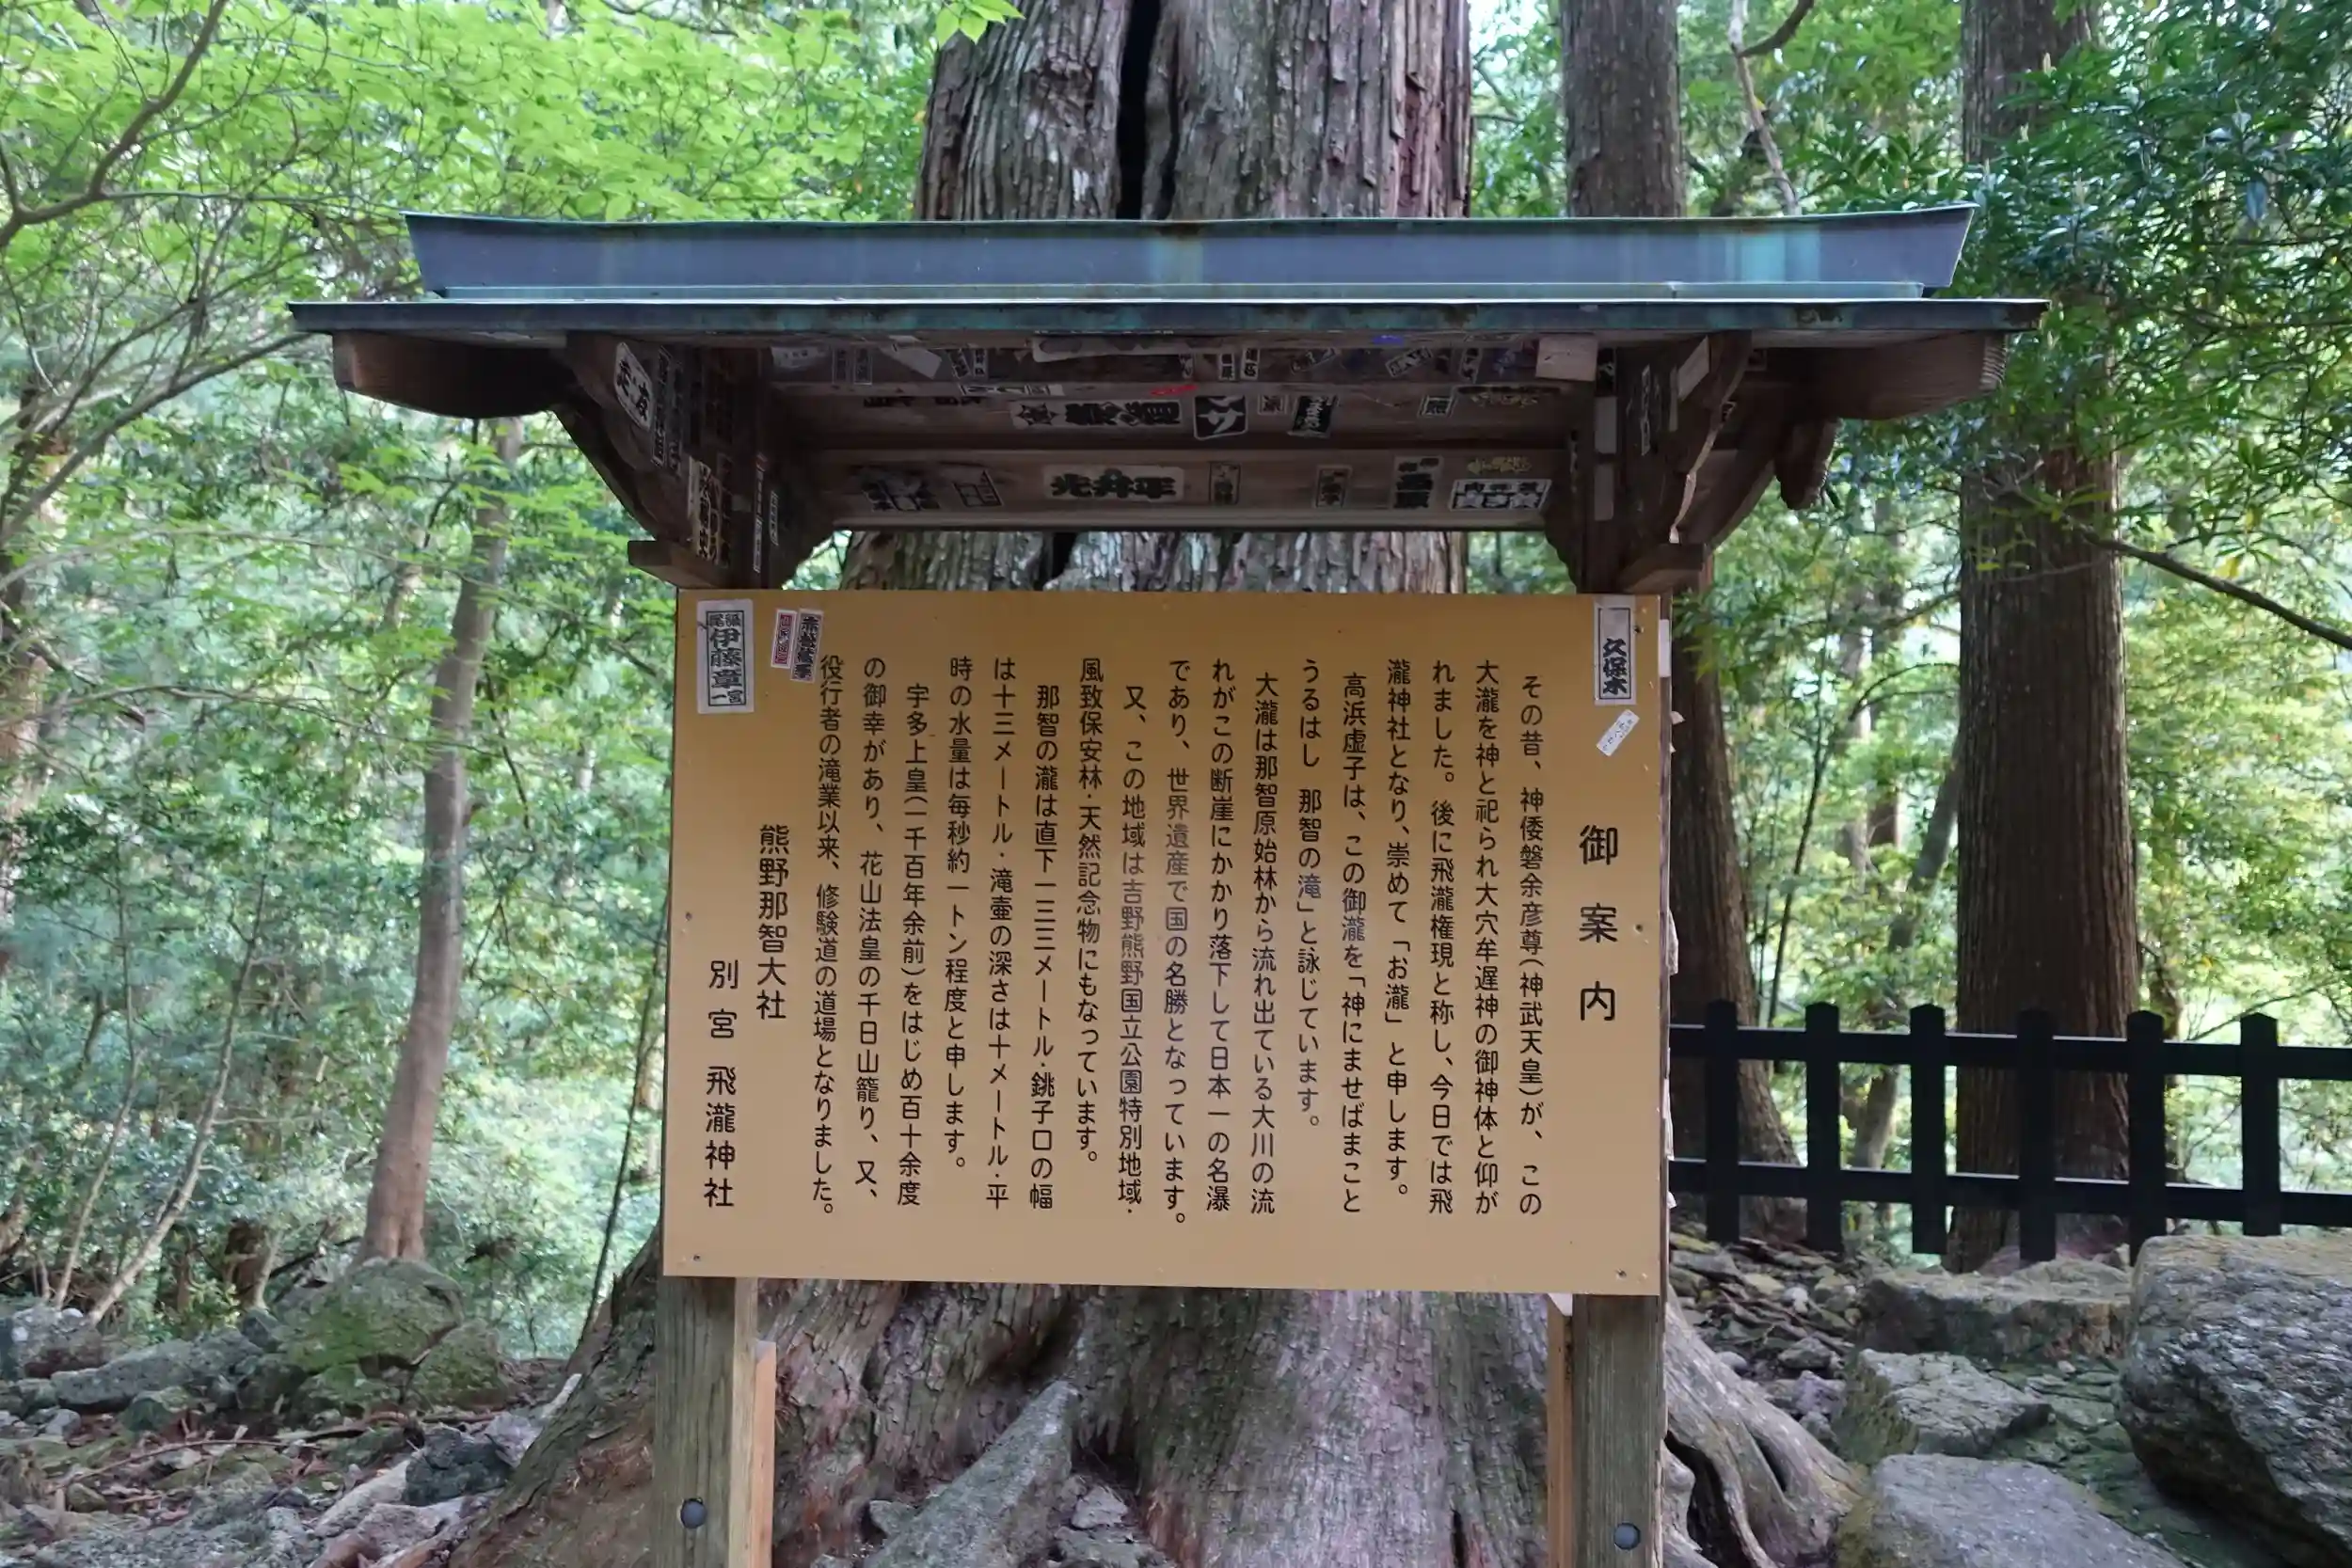 御案内
その昔、神倭磐余彦尊(神武天皇)が、この
大瀧を神と祀られ大穴牟遅神の御神体と仰が
れました。後に飛瀧権現と称し、今日では飛
瀧神社となり、崇めて「お瀧」と申します。
高浜虚子は、この御瀧を「神にませばまこと
うるはし 那智の滝」と詠じています。
大瀧は那智原始林から流れ出ている大川の流
れがこの断崖にかかり落下して日本一の名瀑
であり、世界遺産で国の名勝となっています。
又、この地域は吉野熊野国立公園特別地域・
風致保安林・天然記念物にもなっています。
那智の瀧は直下一三三メートル・銚子口の幅
は十三メートル・滝壷の深さは十メートル・平
時の水量は毎秒約一トン程度と申します。
宇多上皇(一千百年余前)をはじめ百十余度
の御幸があり、花山法皇の千日山籠り、又、
役行者の滝業以来、修験道の道場となりました。
熊野那智大社
別宮 飛瀧神社
久保木
伊藤章一